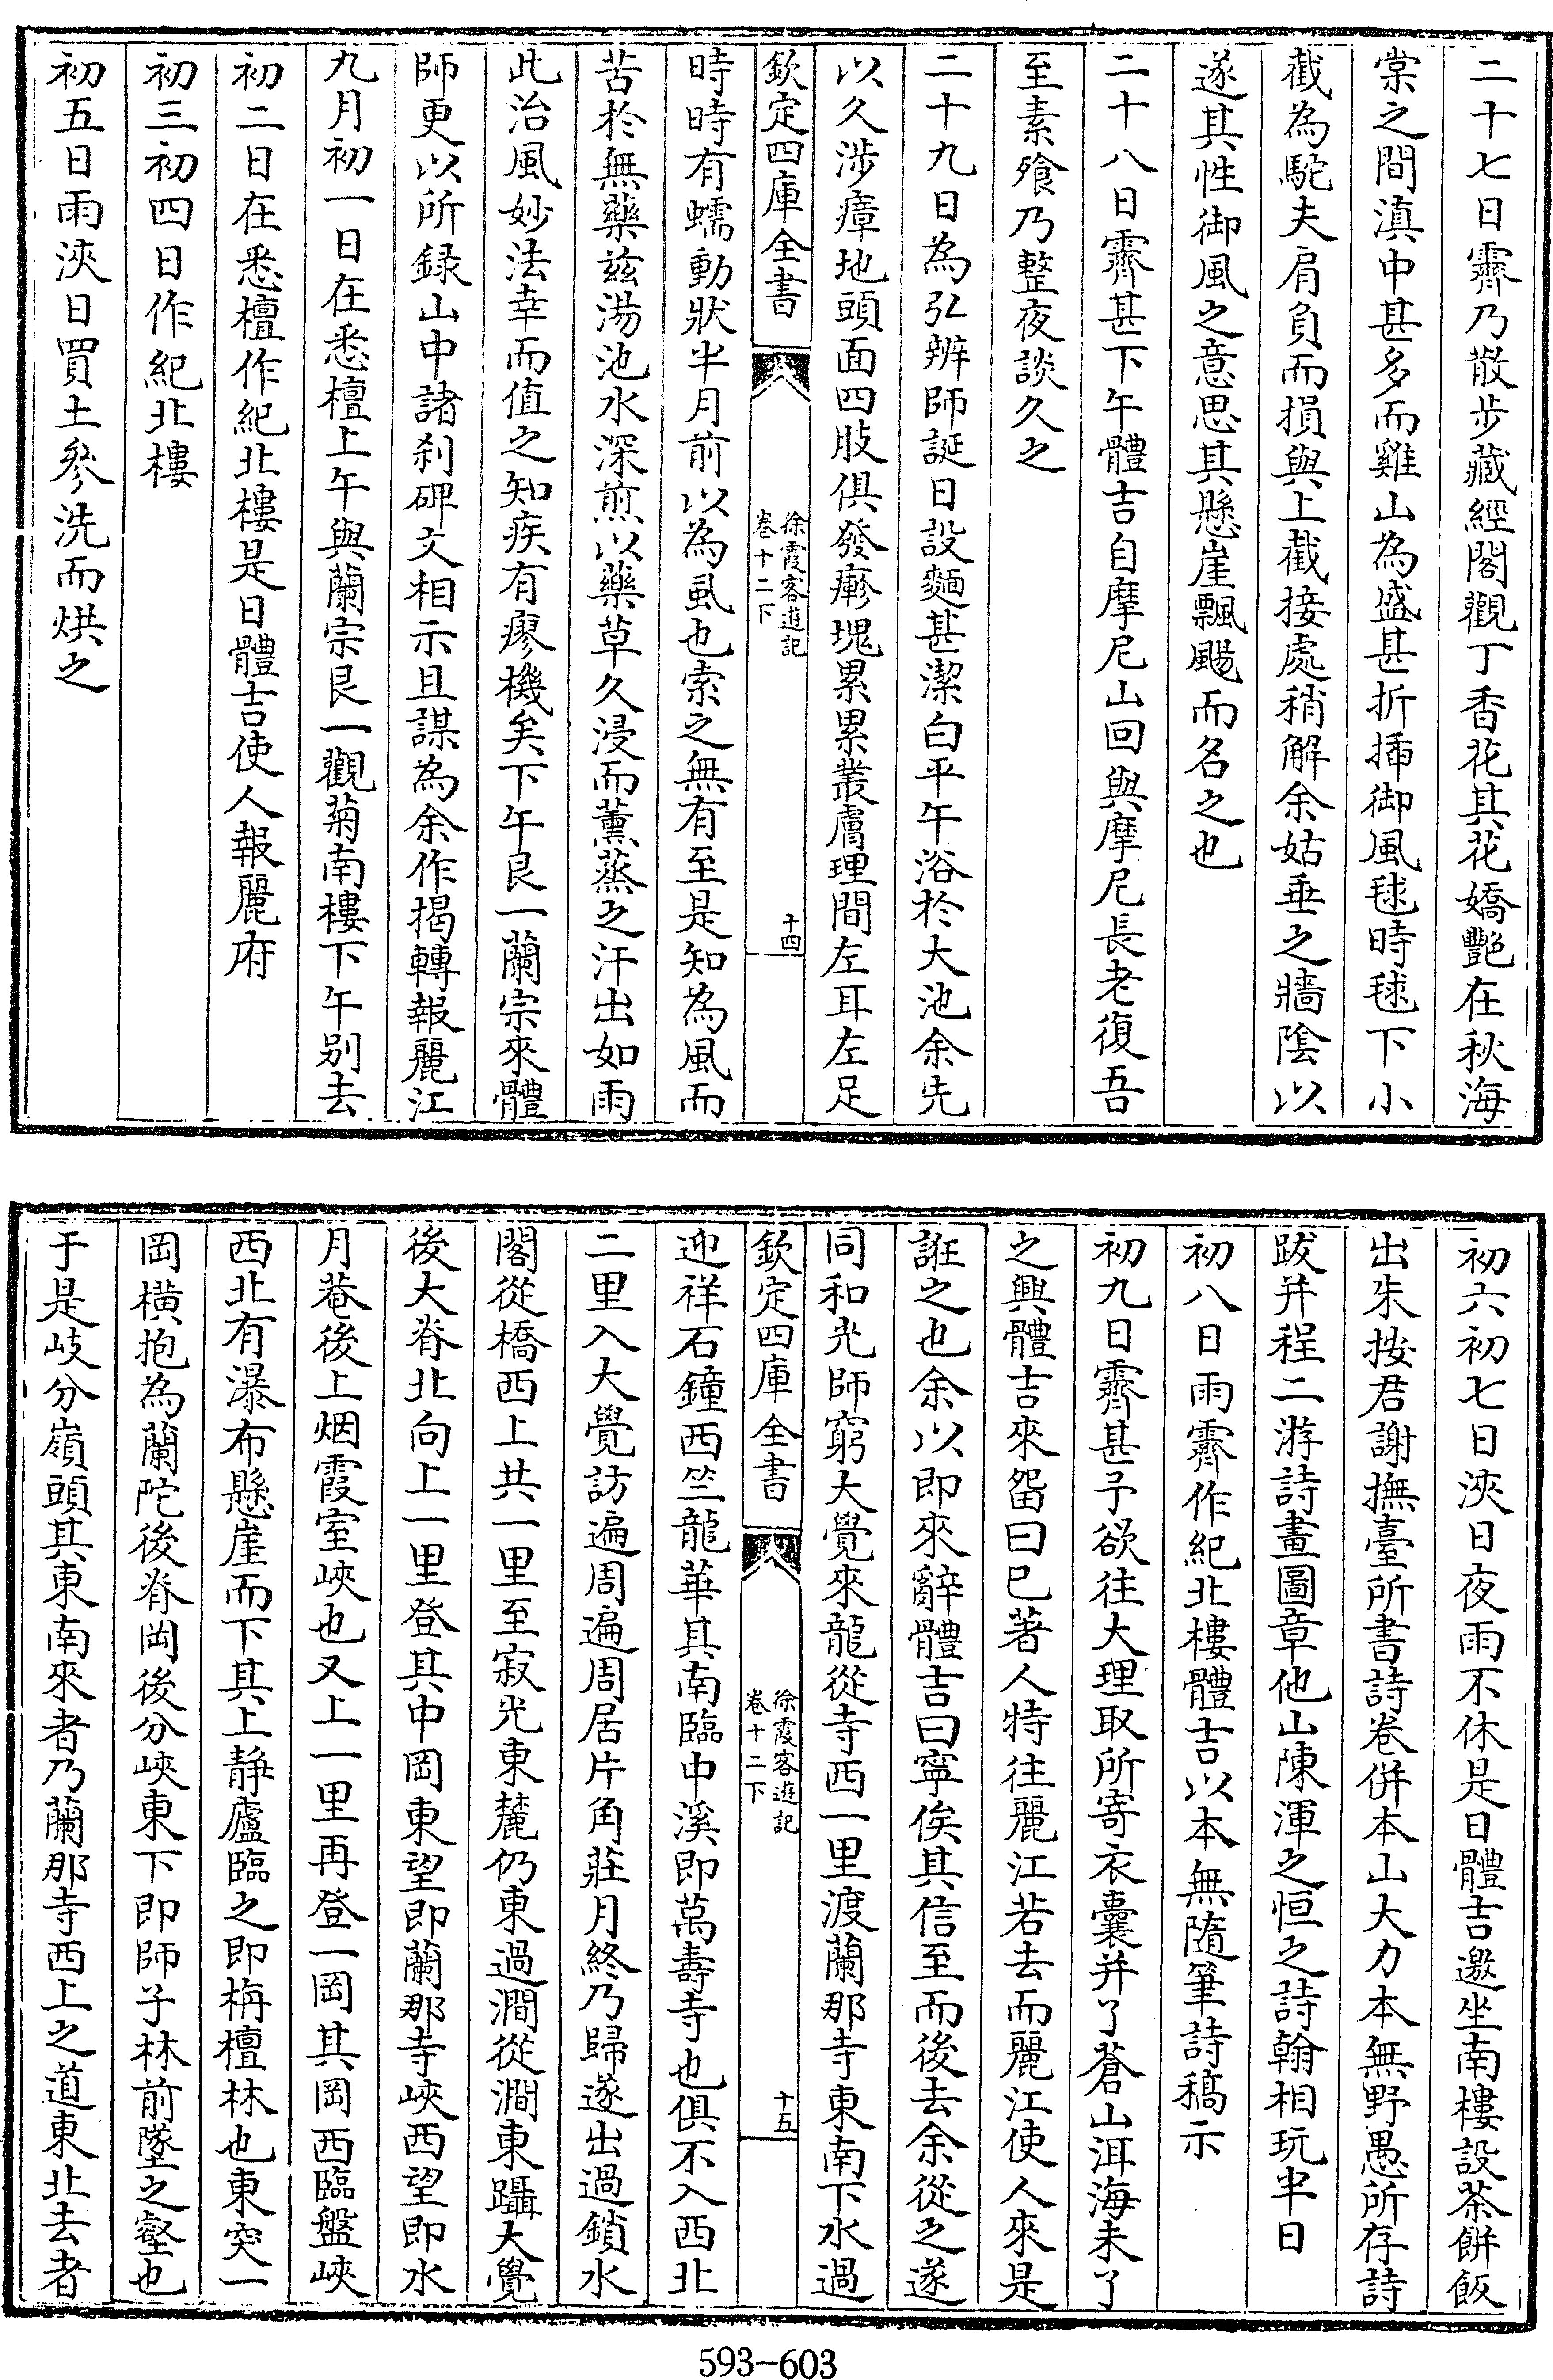 二十七日霽乃散步藏經閣觀丁香花其花嬌艷在秋海
棠之間滇中甚多而雞山為盛甚折揷御風毬時毬下小
截為駝夫肩負而損與上截接處稍解余姑垂之牆陰以
遂其性御風之意思其懸崖飄颺而名之也
二十八日霽甚下午體吉自摩尼山回與摩尼長老復吾
至素飱乃整夜談久之
二十九日為弘辨師誕日設麵甚潔白平午浴於大池余先
以久涉瘴地頭面四肢俱發瘮塊累累叢膚理間左耳左足
欽定四庫全書
徐霞客遊記
卷十二下
十四
時時有蠕動狀半月前以為風也索之無有至是知為風而
苦於無藥兹湯池水深煎以藥草久浸而薰蒸之汗出如雨
此治風妙法幸而值之知疾有瘳機矣下午艮一蘭宗來體
師更以所録山中諸刹碑文相示且謀為余作揭轉報麗江
九月初一日在悉檀上午與蘭宗艮一觀菊南樓下午别去
初二日在悉檀作紀北樓是日體吉使人報麗府
初三初四日作紀北樓
初五日雨浹日買土參洗而烘之
初六初七日浹日夜雨不休是日體吉邀坐南樓設茶餅飯
出朱按君謝撫臺所書詩卷併本山大力本無野愚所存詩
跋并程二游詩畫圖章他山陳渾之恒之詩翰相玩半日
初八日雨霽作紀北樓體吉以本無隨筆詩稿示
初九日霽甚予欲往大理取所寄衣囊并了蒼山洱海未了
之興體吉來畱曰已著人特往麗江若去而麗江使人來是
誑之也余以即來辭體吉曰寧俟其信至而後去余從之遂
同和光師窮大覺來龍從寺西一里渡蘭那寺東南下水過
欽定四庫全書
徐霞客遊記
卷十二下
十五
迎祥石鐘西竺龍華其南臨中溪即萬壽寺也俱不入西北
二里入大覺訪遍周遍周居片角莊月終乃歸遂出過鎖水
閣從橋西上共一里至寂光東麓仍東過澗從澗東躡大覺
後大脊北向上一里登其中岡東望即蘭那寺峽西望即水
月菴後上烟霞室峽也又上一里再登一岡其岡西臨盤峽
西北有瀑布懸崖而下其上靜廬臨之即栴檀林也東突一
岡橫抱為蘭陀後脊岡後分峽東下即師子林前墜之壑也
于是岐分嶺頭其東南來者乃蘭那寺西上之道東北去者
593-603